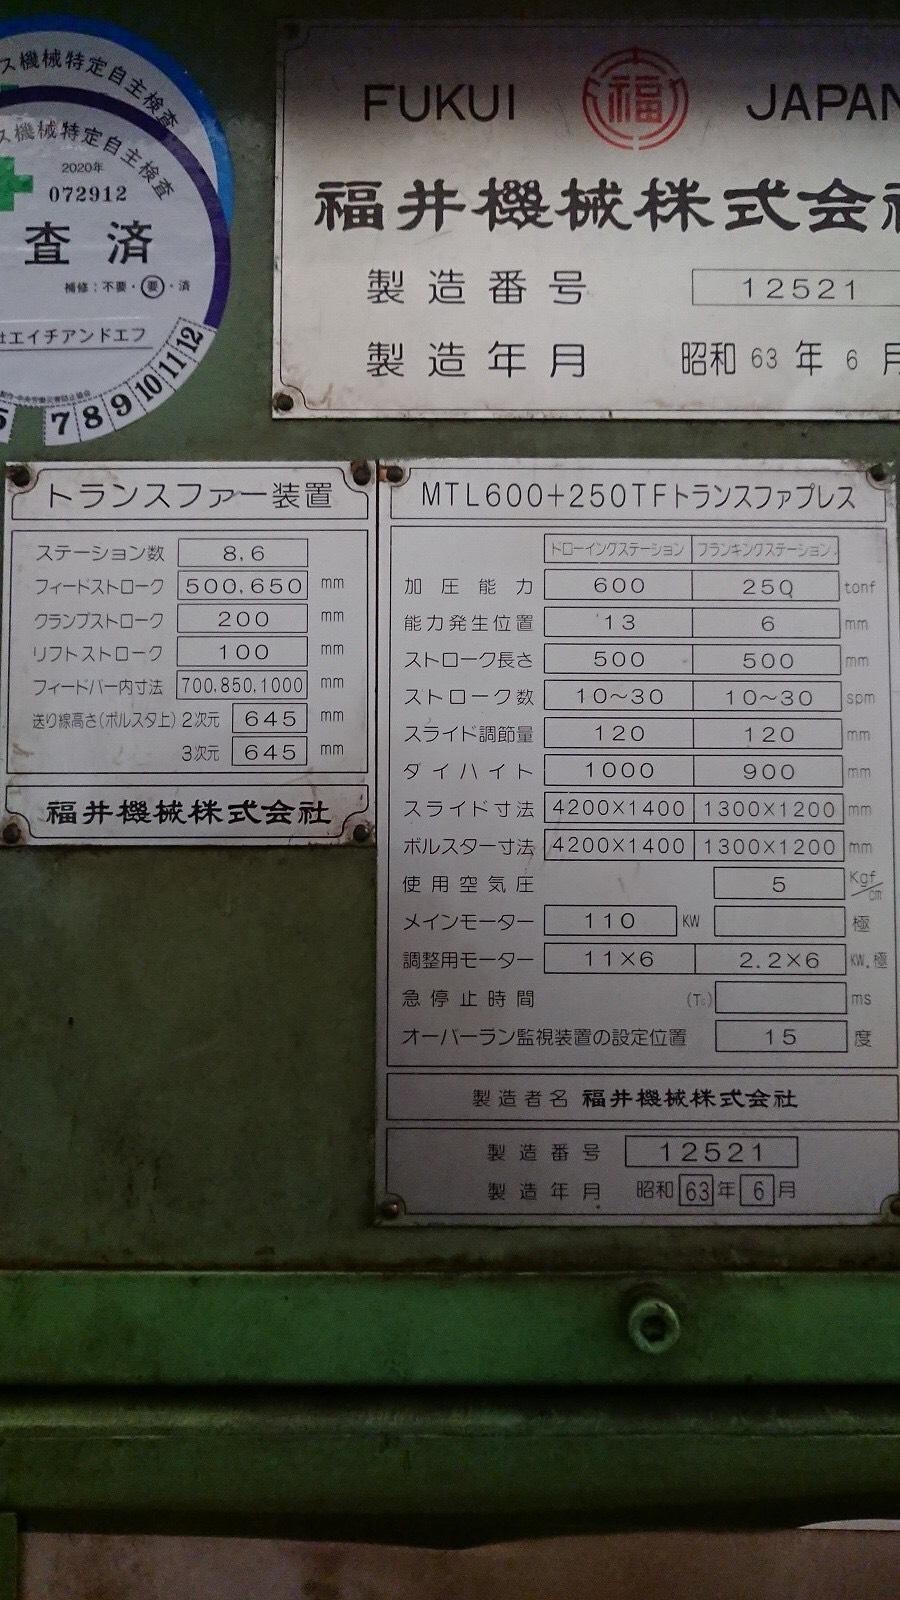 ス機械特定自主検査
ス機械特定自主検査
2020年
072912
査 済
補修:不要・要・済
エイチアンドエフ
5 7 8 9 10 11 12
FUKUI 福 JAPAN
福井機械株式会社
製造番号 12521
製造年月 昭和 63 年 6 月
トランスファー装置
ステーション数 8,6
フィードストローク 500,650 mm
クランプストローク 200 mm
リフトストローク 100 mm
フィードバー内寸法 700,850,1000 mm
送り線高さ(ボルスタ上) 2次元 645 mm
3次元 645 mm
福井機械株式会社
MTL600+250TFトランスファプレス
ドローイングステーション ブランキングステーション
加圧能力 600 250 tonf
能力発生位置 13 6 mm
ストローク長さ 500 500 mm
ストローク数 10~30 10~30 spm
スライド調節量 120 120 mm
ダイハイト 1000 900 mm
スライド寸法 4200×1400 1300×1200 mm
ボルスター寸法 4200×1400 1300×1200 mm
使用空気圧 5 Kgf/cm
メインモーター 110 KW 極
調整用モーター 11×6 2.2×6 KW.極
急停止時間 (Ts) ms
オーバーラン監視装置の設定位置 15 度
製造者名 福井機械株式会社
製造番号 12521
製造年月 昭和 63 年 6 月